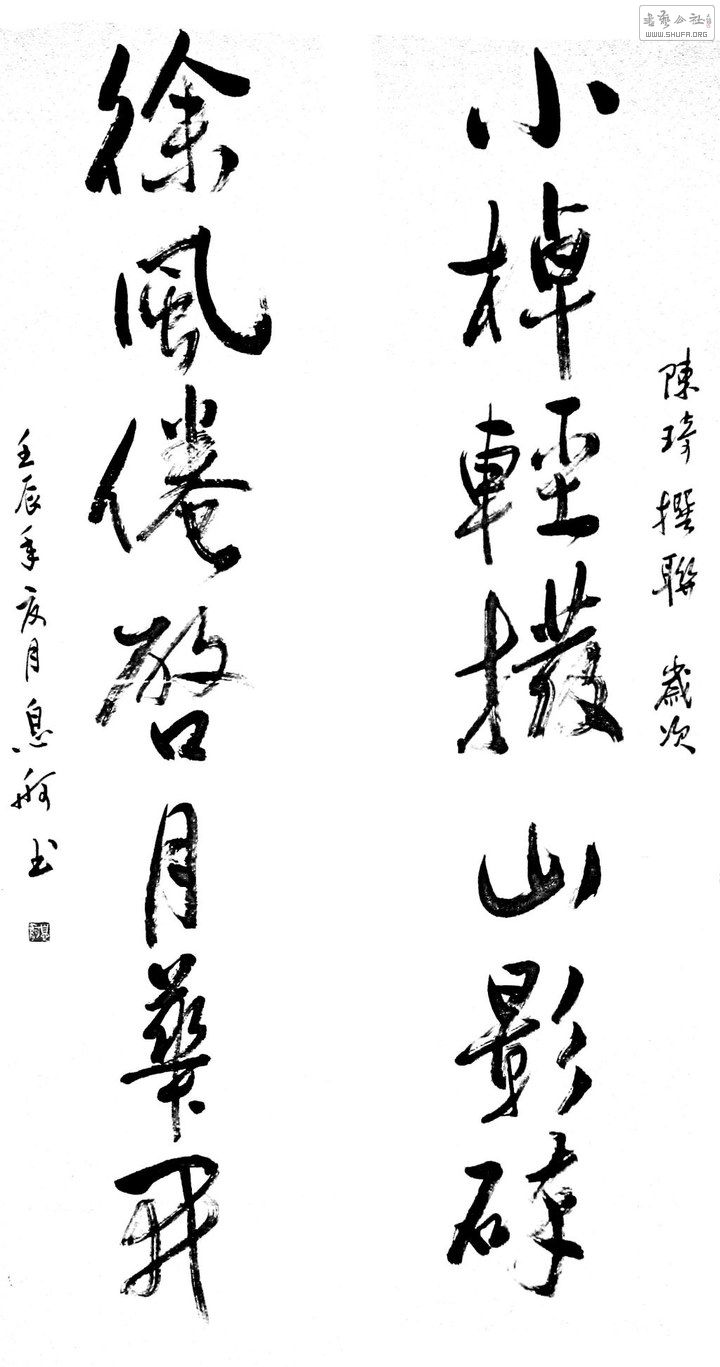 小棹輕撥山影碎
徐風倦啓月華開
陳琦撰聯 歲次
壬辰年夏月息舸书
書藝公社
WWW.SHUFA.ORG